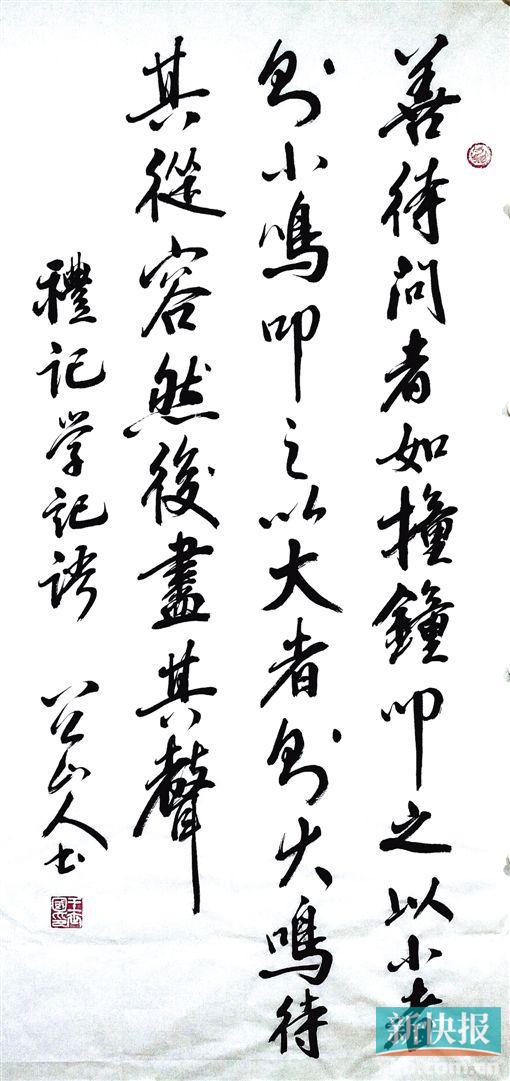 善待問者如撞鐘叩之以小者
則小鳴叩之以大者則大鳴待
其從容然後盡其聲
禮記学記語
山人书
新快报